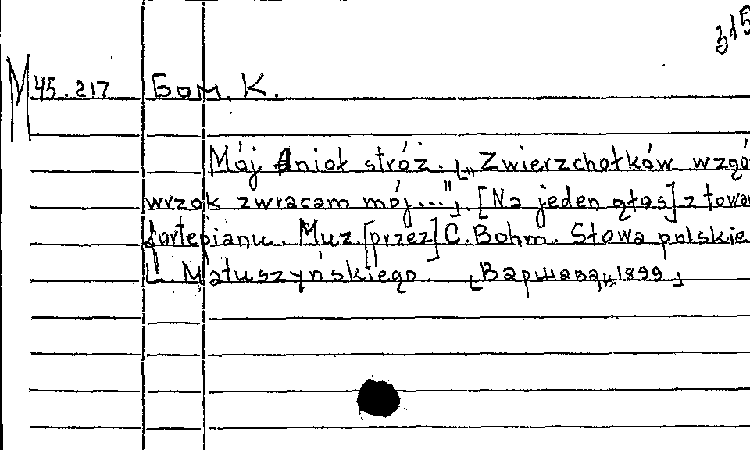 315
M 45.217 Бом. К.
Mój Anioł stróż. [„Z wierzchołków wzgó
wzrok zwracam mój..."]. [Na jeden głos] z towar
fortepianu. Muz. [przez] C. Bohm. Słowa polskie
L. Matuszyńskiego. [Варшава, 1899]